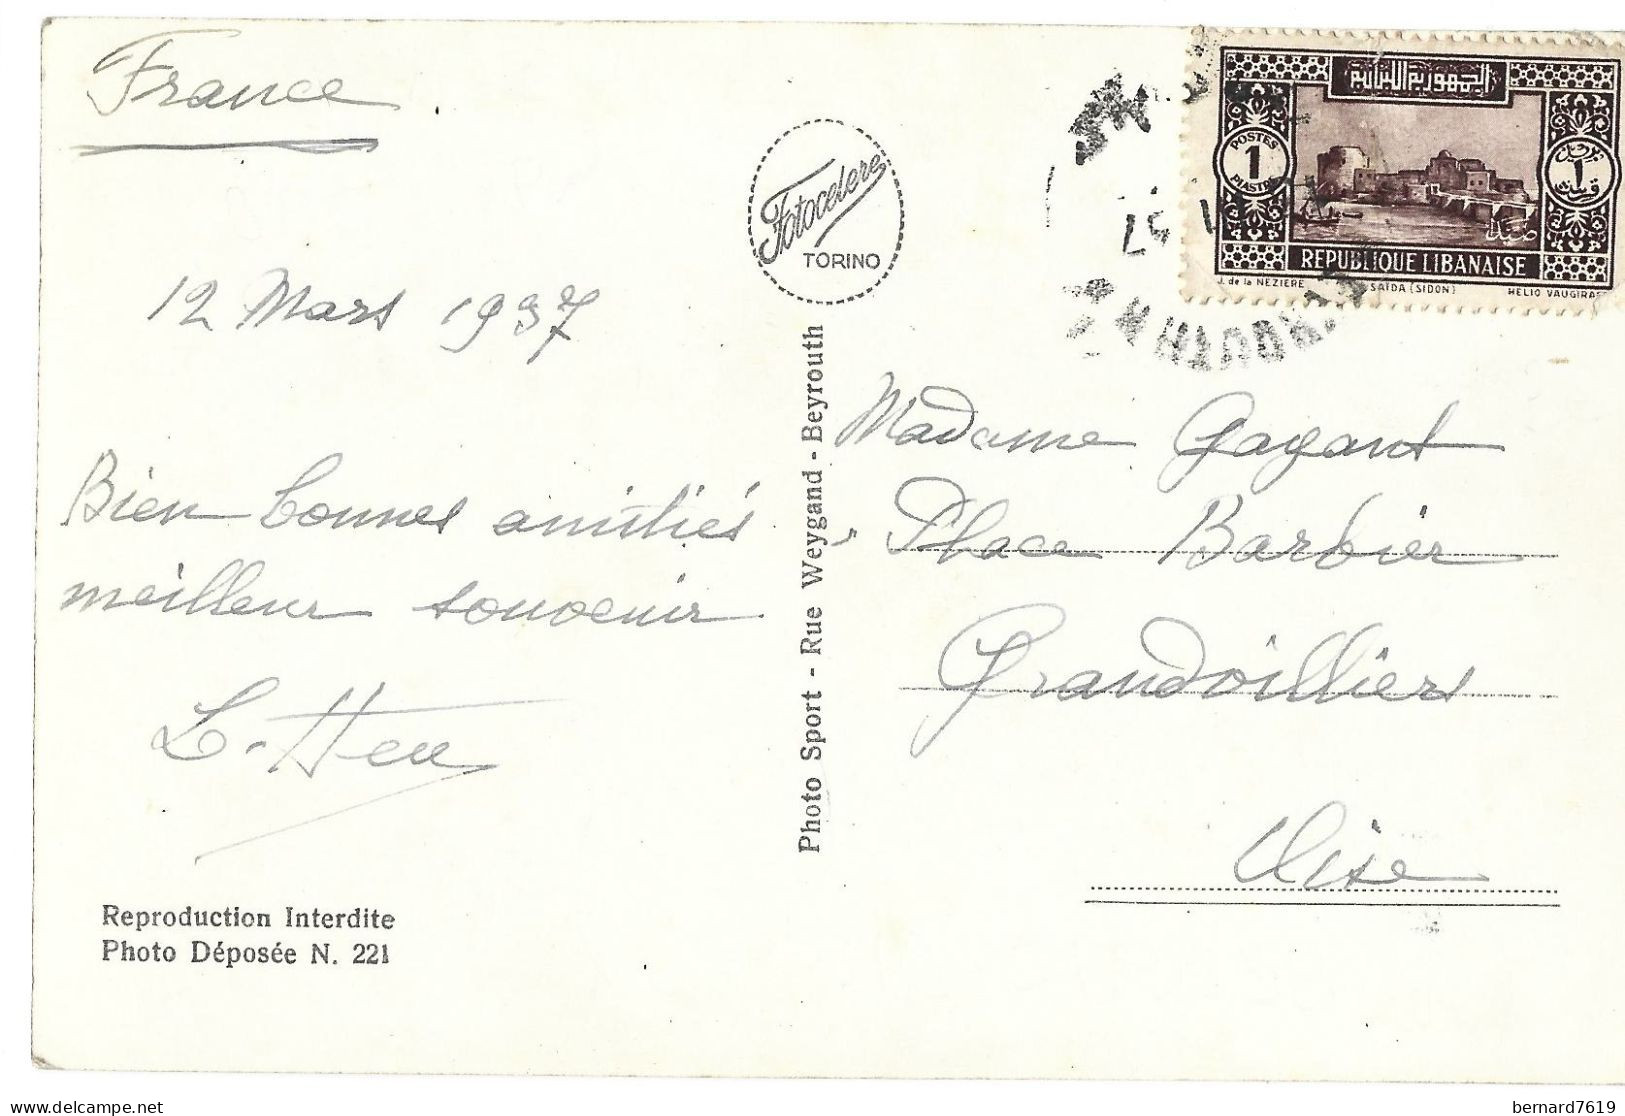 France
12 Mars 1937
Bien bonnes amitiés
meilleur souvenir
Reproduction Interdite
Photo Déposée N. 221
Fotocelere
TORINO
Photo Sport - Rue Weygand - Beyrouth
الجمهورية اللبنانية
POSTES
1
PIASTRE
١
صيدا
REPUBLIQUE LIBANAISE
J. de la NEZIERE
SAÏDA (SIDON)
HELIO VAUGIRARD
37
Madame Gagant
Place Barbier
Grandvilliers
Oise
bernard7619